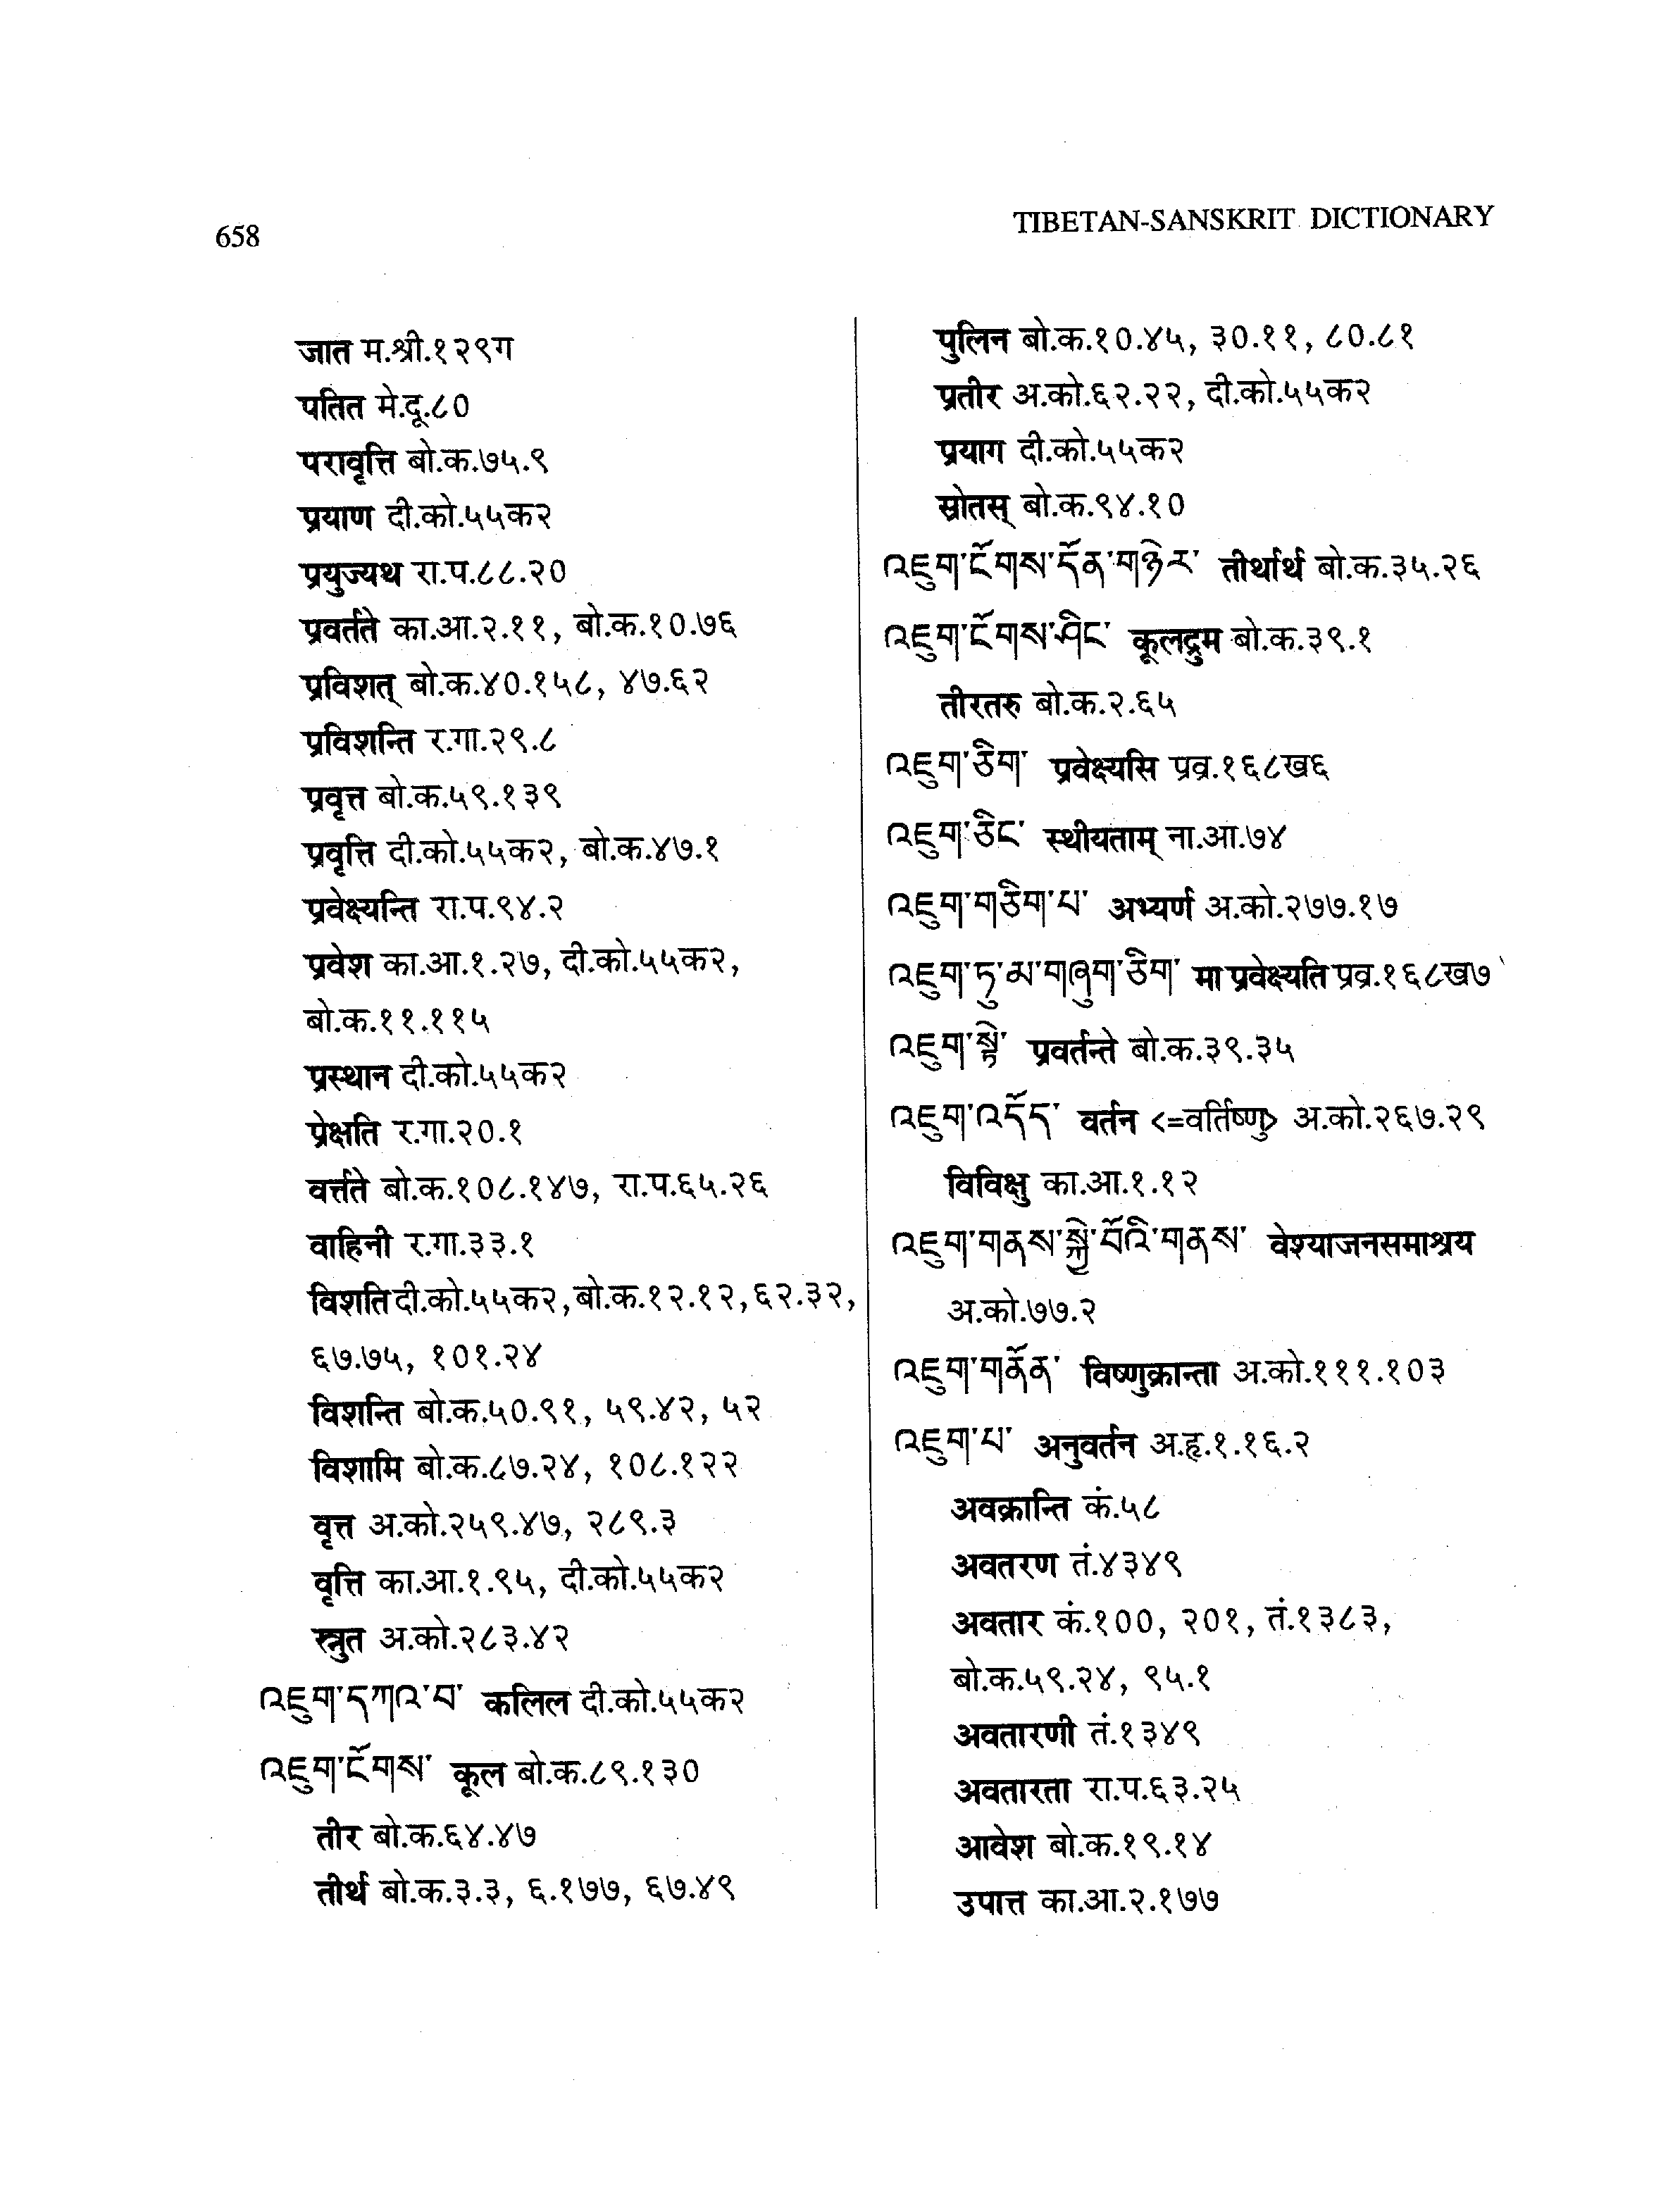 658
TIBETAN-SANSKRIT DICTIONARY
जात म.श्री.१२९ग
पतित मे.दू.८०
परावृत्ति बो.क.७५.९
प्रयाण दी.को.५५क२
प्रयुज्यथ रा.प.८८.२०
प्रवर्तते का.आ.२.११, बो.क.१०.७६
प्रविशत् बो.क.४०.१५८, ४७.६२
प्रविशन्ति र.गा.२९.८
प्रवृत्त बो.क.५९.१३९
प्रवृत्ति दी.को.५५क२, बो.क.४७.१
प्रवेक्ष्यन्ति रा.प.९४.२
प्रवेश का.आ.१.२७, दी.को.५५क२,
बो.क.११.११५
प्रस्थान दी.को.५५क२
प्रेक्षति र.गा.२०.१
वर्त्तते बो.क.१०८.१४७, रा.प.६५.२६
वाहिनी र.गा.३३.१
विशति दी.को.५५क२, बो.क.१२.१२, ६२.३२,
६७.७५, १०१.२४
विशन्ति बो.क.५०.९१, ५९.४२, ५२
विशामि बो.क.८७.२४, १०८.१२२
वृत्त अ.को.२५९.४७, २८९.३
वृत्ति का.आ.१.९५, दी.को.५५क२
स्त्रुत अ.को.२८३.४२
འཇུག་དཀའ་བ་ कलिल दी.को.५५क२
འཇུག་ངོགས་ कूल बो.क.८९.१३०
तीर बो.क.६४.४७
तीर्थ बो.क.३.३, ६.१७७, ६७.४९
पुलिन बो.क.१०.४५, ३०.११, ८०.८१
प्रतीर अ.को.६२.२२, दी.को.५५क२
प्रयाग दी.को.५५क२
स्रोतस् बो.क.९४.१०
འཇུག་ངོགས་དོན་གཉེར་ तीर्थार्थ बो.क.३५.२६
འཇུག་ངོགས་ཤིང་ कूलद्रुम बो.क.३९.१
तीरतरु बो.क.२.६५
འཇུག་ཅིག་ प्रवेक्ष्यसि प्रव्र.१६८ख६
འཇུག་ཅིང་ स्थीयताम् ना.आ.७४
འཇུག་གཅིག་པ་ अभ्यर्ण अ.को.२७७.१७
འཇུག་ཏུ་མ་གཞུག་ཅིག་ मा प्रवेक्ष्यति प्रव्र.१६८ख७
འཇུག་སྟེ་ प्रवर्तन्ते बो.क.३९.३५
འཇུག་འདོད་ वर्तन <=वर्तिष्णु> अ.को.२६७.२९
विविक्षु का.आ.१.१२
འཇུག་གནས་སྐྱེ་བོའི་གནས་ वेश्याजनसमाश्रय
अ.को.७७.२
འཇུག་གནོན་ विष्णुक्रान्ता अ.को.१११.१०३
འཇུག་པ་ अनुवर्तन अ.हृ.१.१६.२
अवक्रान्ति कं.५८
अवतरण तं.४३४९
अवतार कं.१००, २०१, तं.१३८३,
बो.क.५९.२४, ९५.१
अवतारणी तं.१३४९
अवतारता रा.प.६३.२५
आवेश बो.क.१९.१४
उपात्त का.आ.२.१७७